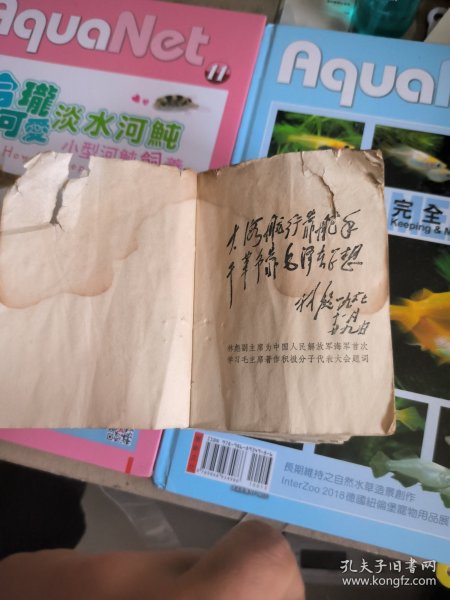 AquaNet
11
玲瓏
可愛
淡水河魨
小型河魨飼養
How
AquaN
完全
Keeping & M
大海航行靠舵手
干革命靠毛泽东思想
林彪 一九六七
十一月
廿九日
林彪副主席为中国人民解放军海军首次
学习毛主席著作积极分子代表大会题词
長期維持之自然水草造景創作
InterZoo 2018德國紐倫堡寵物用品展
孔夫子旧书网
www.kongfz.com